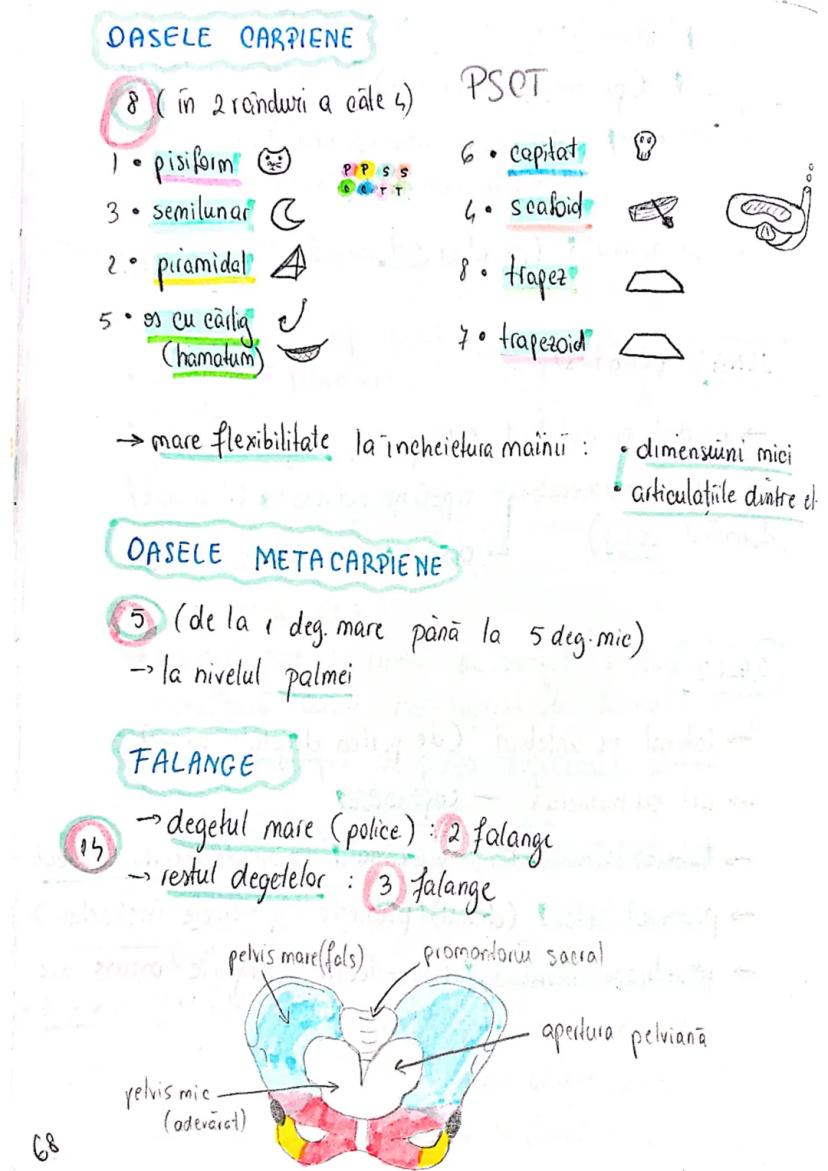 OASELE CARPIENE
8 (în 2 rânduri a câte 4)
PSCT
1 • pisiform
3 • semilunar
2 • piramidal
5 • os cu cârlig
(hamatum)
P P S S
O C T T
6 • capitat
4 • scafoid
8 • trapez
7 • trapezoid
→ mare flexibilitate la încheietura mâinii :
• dimensiuni mici
• articulațiile dintre el
OASELE METACARPIENE
5 (de la 1 deg. mare până la 5 deg. mic)
→ la nivelul palmei
FALANGE
14
→ degetul mare (police) : 2 falange
→ restul degetelor : 3 falange
pelvis mare (fals)
promontoriu sacral
apertura pelviană
pelvis mic
(adevărat)
68